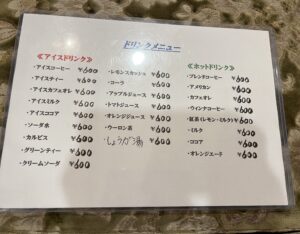 ドリンクメニュー
≪アイスドリンク≫
・アイスコーヒー ￥600
・アイスティー ￥600
・アイスカフェオレ ￥600
・アイスミルク ￥600
・アイスココア ￥600
・ソーダ水 ￥600
・カルピス ￥600
・グリーンティー ￥600
・クリームソーダ ￥600
・レモンスカッシュ ￥600
・コーラ ￥600
・アップルジュース ￥600
・トマトジュース ￥600
・オレンジジュース ￥600
・ウーロン茶 ￥600
・しょうが湯 ￥600
≪ホットドリンク≫
・ブレンドコーヒー ￥600
・アメリカン ￥600
・カフェオレ ￥600
・ウィンナコーヒー ￥600
・紅茶(レモン・ミルク) ￥600
・ミルク ￥600
・ココア ￥600
・オレンジエード ￥600